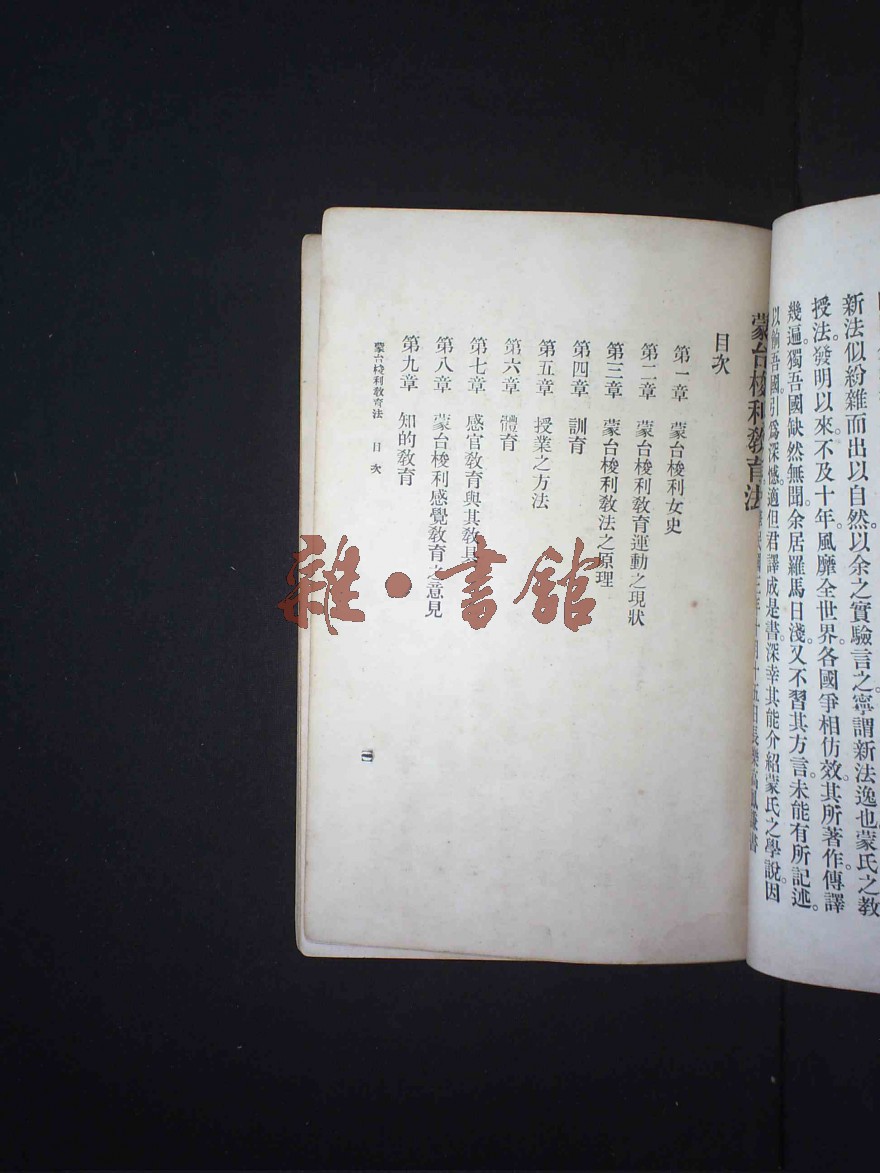 新法似紛雜而出以自然。以余之實驗言之。寧謂新法逸也。蒙氏之教
授法發明以來。不及十年。風靡全世界。各國爭相仿效。其所著作。傳譯
幾遍。獨吾國缺然無聞。余居羅馬日淺。又不習其方言。未能有所記述。
以餉吾國。引爲深憾。適但君譯成是書。深幸其能介紹蒙氏之學說。因
十月十五日長樂高鳳謙書
蒙台梭利教育法
目次
第一章 蒙台梭利女史
第二章 蒙台梭利教育運動之現狀
第三章 蒙台梭利教法之原理
第四章 訓育
第五章 授業之方法
第六章 體育
第七章 感官教育與其教具
第八章 蒙台梭利感覺教育之意見
第九章 知的教育
蒙台梭利教育法 目次
一
雜·書館